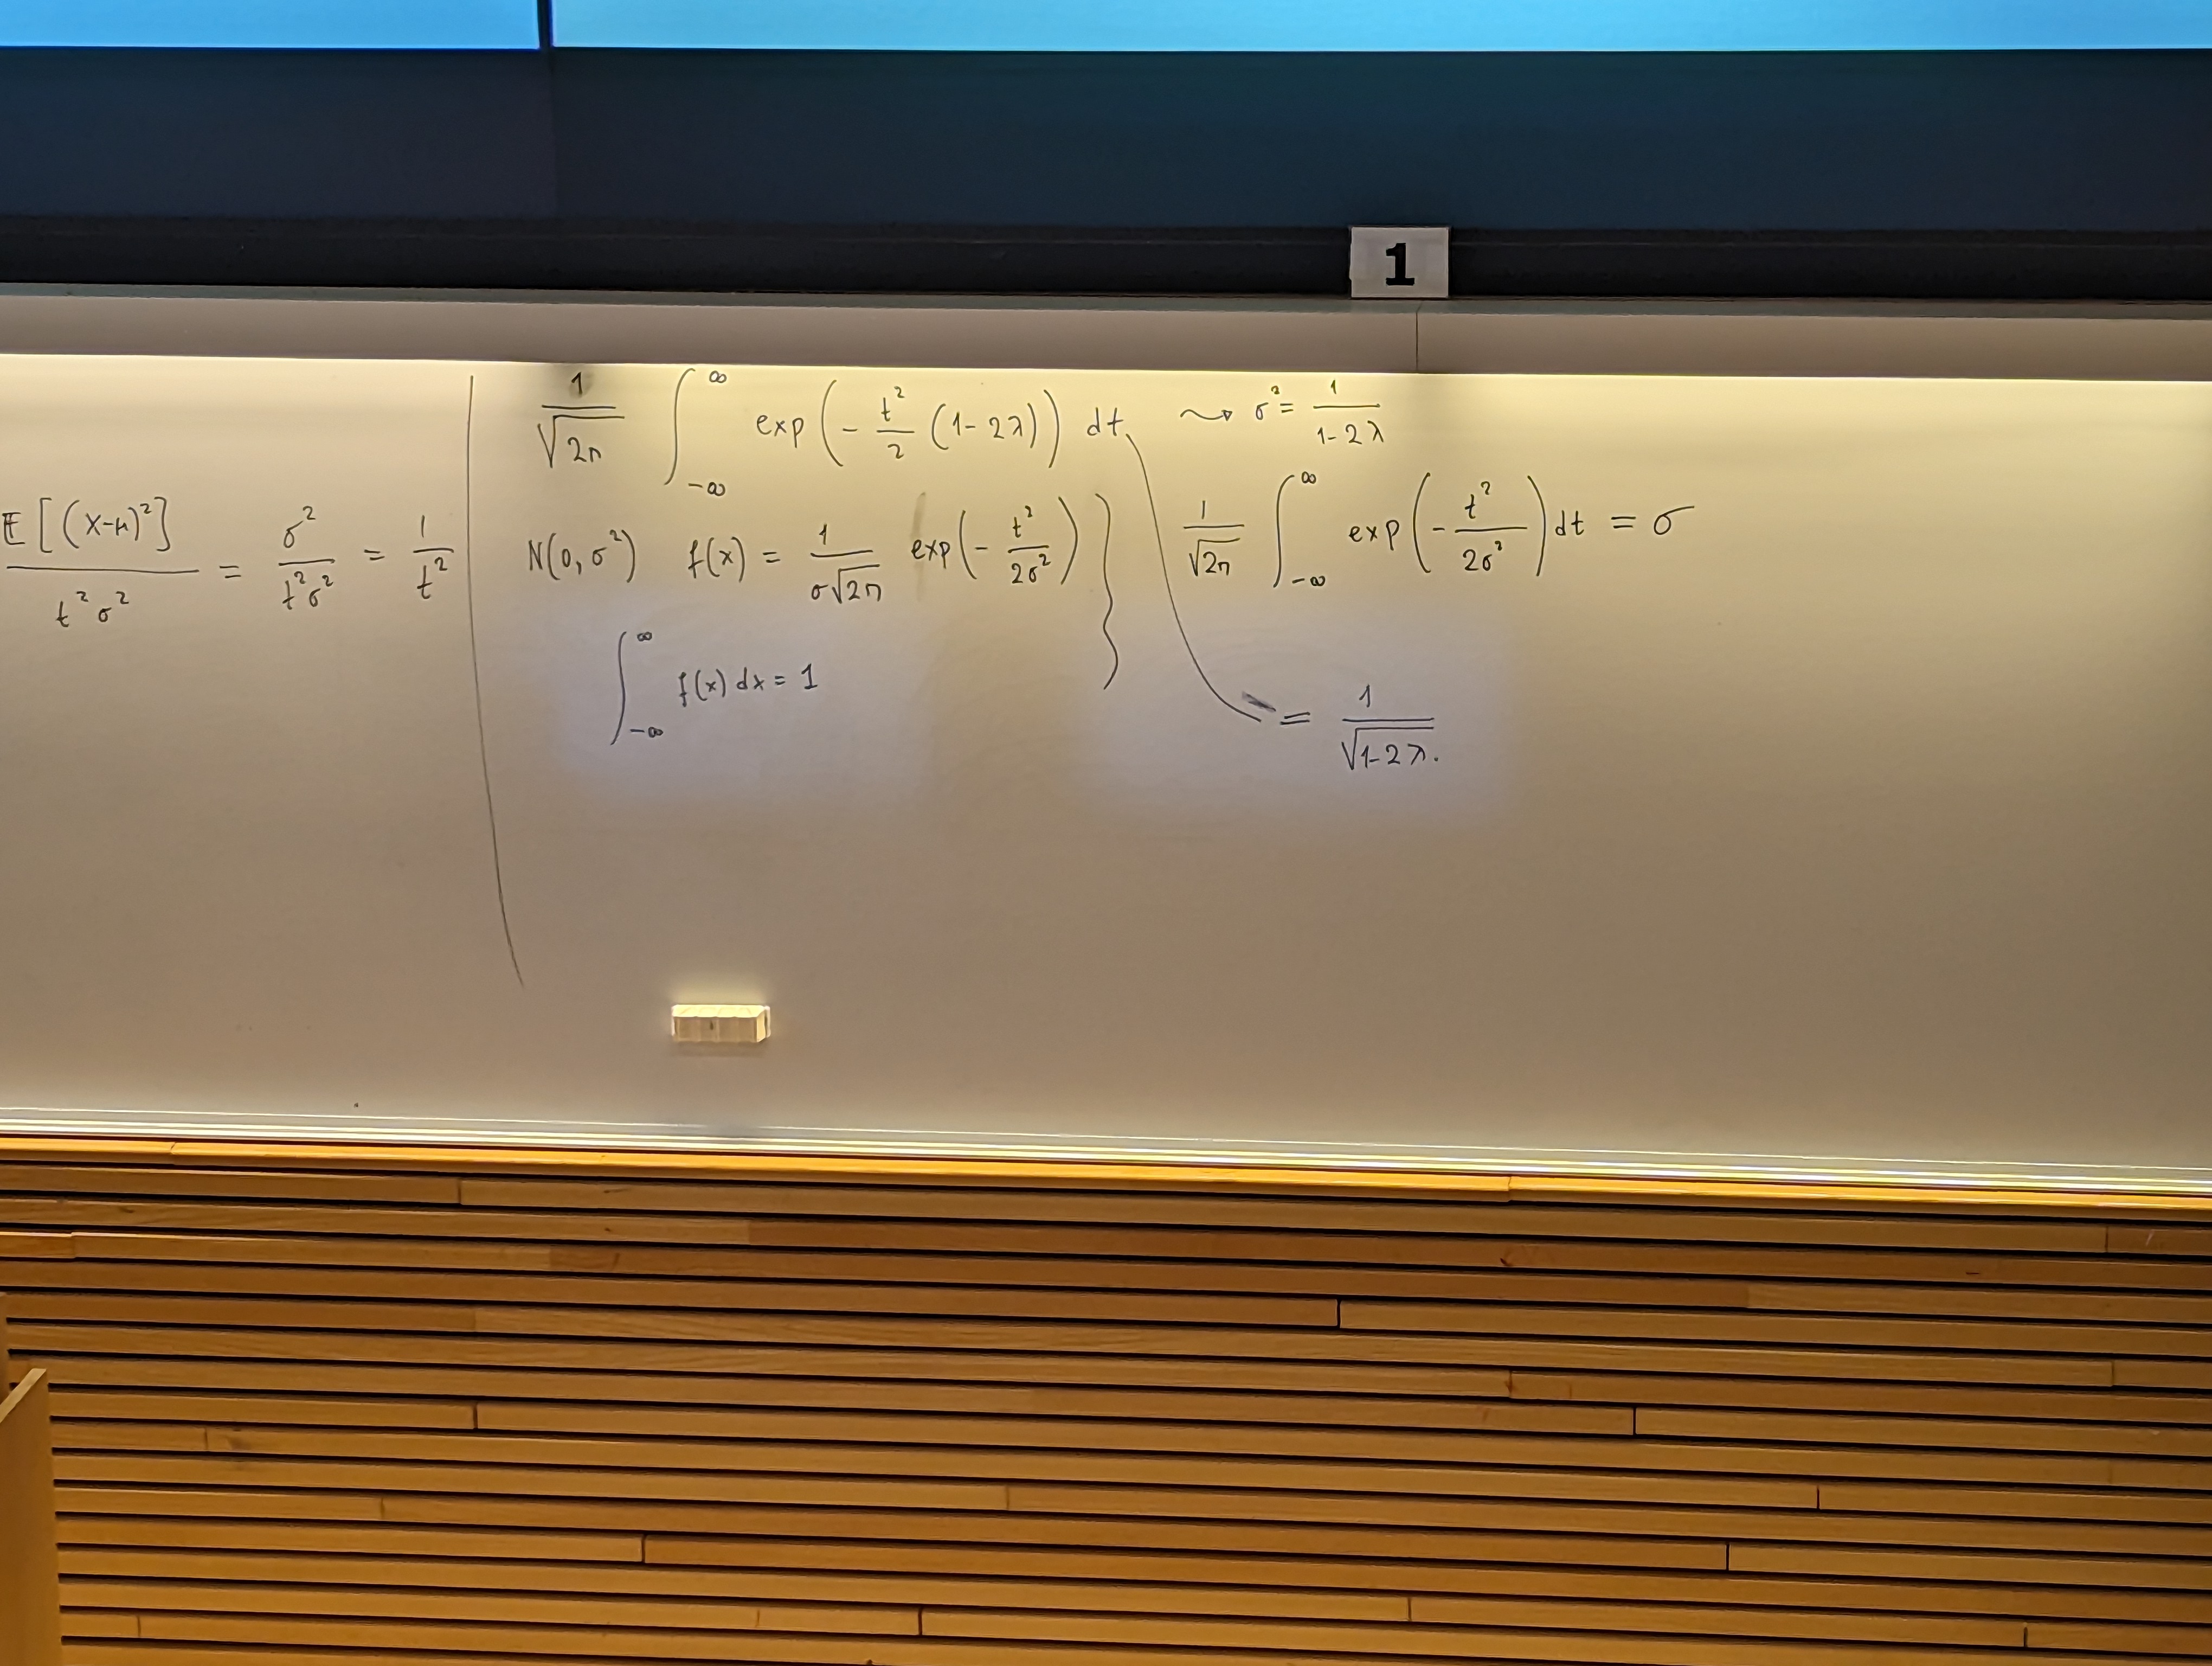 1
E[(X-μ)²] / t²σ² = σ² / t²σ² = 1 / t²
1/√2π ∫_{-∞}^{∞} exp(- t²/2 (1-2λ)) dt ⇝ σ² = 1/(1-2λ)
N(0,σ²) f(x) = 1/(σ√2π) exp(- t²/2σ²) } 1/√2π ∫_{-∞}^{∞} exp(- t²/2σ²) dt = σ
∫_{-∞}^{∞} f(x) dx = 1
= 1/√1-2λ.